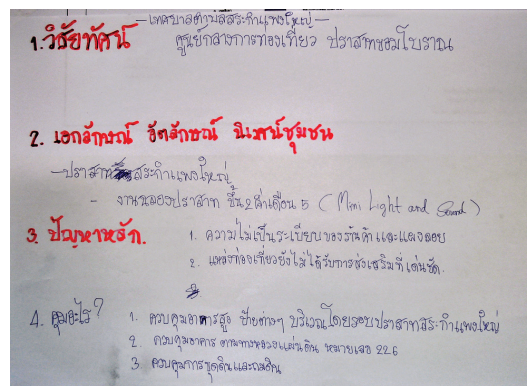 —เทศบาลตำบลสระกำแพงใหญ่—
1.วิสัยทัศน์ ศูนย์กลางการท่องเที่ยว ปราสาทขอมโบราณ
2. เอกลักษณ์ อัตลักษณ์ นิเวศน์ชุมชน
—ปราสาทสระกำแพงใหญ่
- งานฉลองปราสาท ขึ้น 2 ค่ำเดือน 5 (Mini Light and Sound)
3. ปัญหาหลัก. 1. ความไม่เป็นระเบียบของร้านค้าและแผงลอย
2. แหล่งท่องเที่ยวยังไม่ได้รับการส่งเสริมที่เด่นชัด.
4. คุมอะไร? 1. ควบคุมอาคารสูง ป้ายต่างๆ บริเวณโดยรอบปราสาทสระกำแพงใหญ่
2. ควบคุมอาคาร ตามทางหลวงแผ่นดิน หมายเลข 226
3. ควบคุมการขุดดินและถมดิน